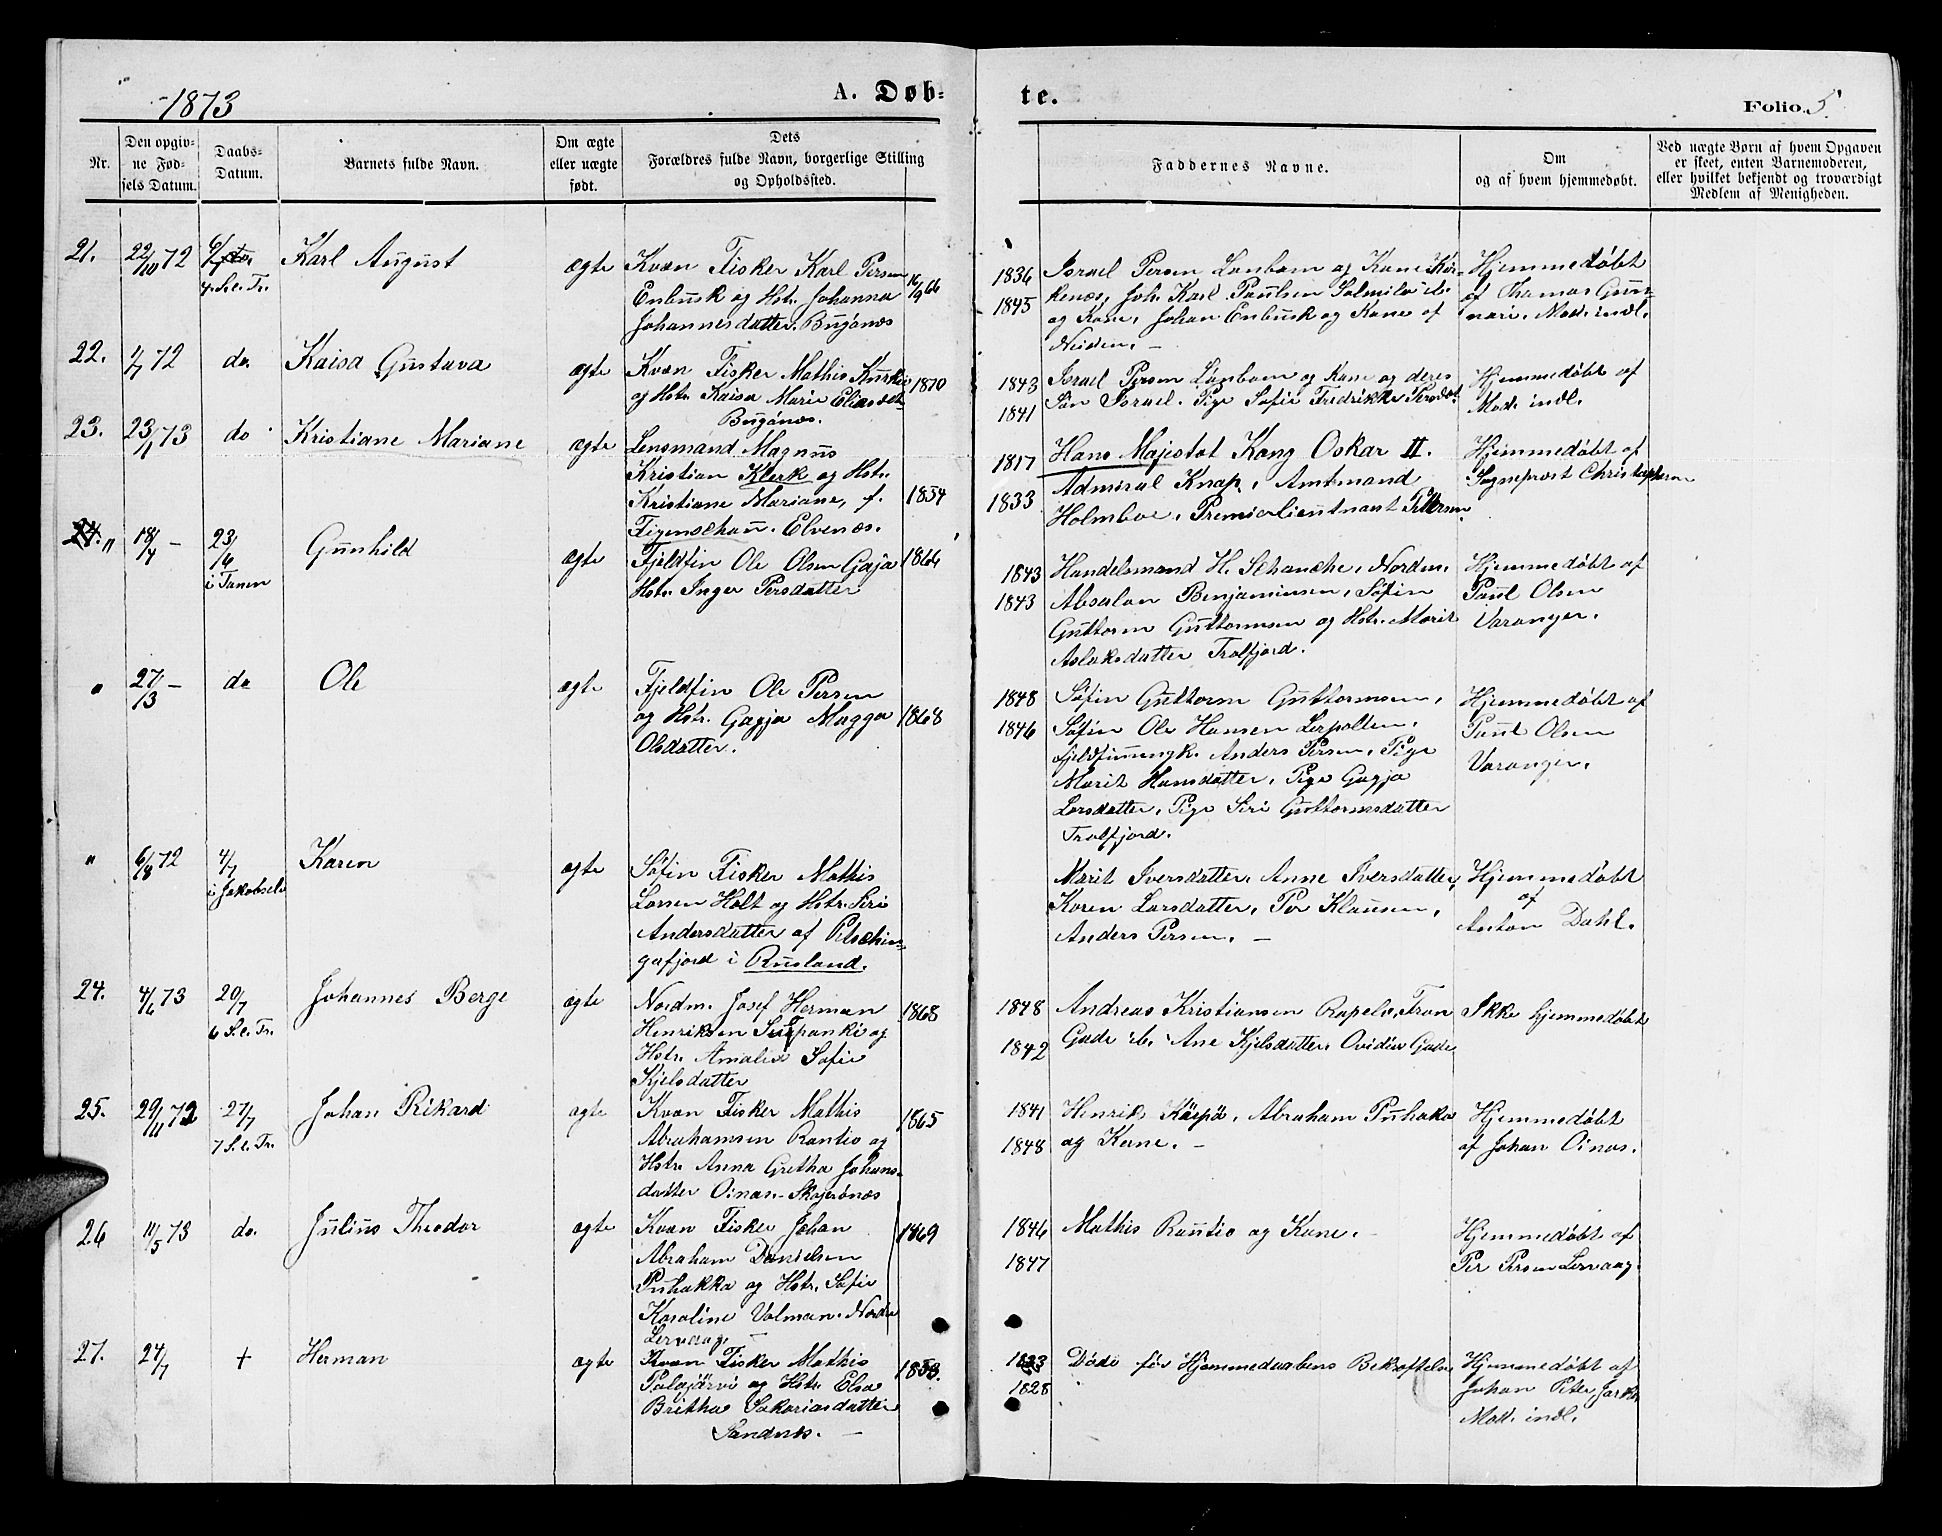 1873
A. Døb-
te.
Folio 5.
Nr.
Den opgiv-
ne Fød-
sels Datum.
Daabs-
Datum.
Barnets fulde Navn.
Om ægte
eller uægte
født.
Dets
Forældres fulde Navn, borgerlige Stilling
og Opholdssted.
Faddernes Navne.
Om
og af hvem hjemmedøbt.
Ved uægte Børn af hvem Opgaven
er skeet, enten Barnemoderen,
eller hvilket bekjendt og troværdigt
Medlem af Menigheden.
21. 22/10 72
4 S. e. Tr.
Karl August
ægte
Kvæn Fisker Karl Persen
Enbusk og Hstr. Johanna
Johannesdatter. Bugønæs
16/9 66
1836
1845
Israel Persen Lanbam og Kone Kir-
kenæs, Joh. Karl Paulsen
og Kone, Johan Enbusk og Kone af
Neiden. –
Hjemmedøbt
af Thomas Gun-
nari. Mod. indl.
22. 1/7 72 do.
Kaisa Gustava
ægte
Kvæn Fisker Mathis Kurkio
og Hstr. Kaisa Marie Eliasdt.
Bugønæs.
1870
1843
1841
Israel Persen Lanbam og Kone og deres
Søn Israel. Pige Sofie Fredrikke Persdat.
Hjemmedøbt af
Mod. indl.
23. 23/1 73 do.
Kristiane Mariane
ægte
Lensmand Magnus
Kristian Klerk og Hstr.
Kristiane Mariane, f.
Figenschau. Elvenæs.
1854
1817
1833
Hans Majestæt Kong Oskar II.
Admiral Knap, Amtmand
Holmboe, Premierlieutnant
Hjemmedøbt af
Sogneprost Christophersen
24. " 18/4 – 23/6
i Tanen
Gunhild
ægte
Fjeldfin Ole Olsen Gagja
Hstr. Inger Persdatter
1866
1843
1843
Handelsmand H. Schanche, Nordm.
Absalon Benjaminsen, Søfin
Guttorm Guttormsen og Hstr. Marit
Aslaksdatter Trolfjord.
Hjemmedøbt af
Paul Olsen
Varanger.
" 27/3 – do
Ole
ægte
Fjeldfin Ole Persen
og Hstr. Gagja Magga
Olsdatter.
1868
1848
1846
Søfin Guttorm Guttormsen,
Søfin Ole Hansen Lerpollen,
fjeldfinungk. Anders Persen, Pige
Marit Hansdatter, Pige Gagja
Larsdatter, Pige Siri Guttormsdatter
Trolfjord.
Hjemmedøbt af
Paul Olsen
Varanger.
" 6/8 72 4/7
i Jakobselv
Karen
ægte
Søfin Fisker Mathis
Larsen Holt og Hstr. Siri
Andersdatter af Pitschin-
gafjord i Rusland.
Marit Iversdatter, Anne Iversdatter,
Karen Larsdatter, Per Klausen,
Anders Persen. –
Hjemmedøbt
af
Anton Dahl.
24. 4/6 73 20/7
6 S. e. Tr.
Johannes Berge
ægte
Nordm. Josef Herman
Henriksen og
Hstr. Amalie Sofie
Kjelsdatter
1868
1848
1842
Andreas Kristiansen Rapelv, Tron
Gade, Ane Kjelsdatter, Ovidia Gade
Ikke hjemmedøbt
25. 29/11 72 27/7
7 S. e. Tr.
Johan Rikard
ægte
Kvæn Fisker Mathis
Abrahamsen Rantio og
Hstr. Anna Gretha Johans-
datter Oinas. Skogerønæs
1865
1841
1848
Henrik Karpø, Abraham Puhaka
og Kone. –
Hjemmedøbt
af Johan Oinas.
26 11/5 73 do.
Julius Theodor
ægte
Kvæn Fisker Johan
Abraham Danielsen
Puhakka og Hstr. Sofie
Karoline Valman. Nordre
Lervaag.
1869
1846
1847
Mathis Rautio og Kone. –
Hjemmedøbt af
Per Persen Lervaag.
27. 24/7 +
Herman
ægte
Kvæn Fisker Mathis
Palojärvi og Hstr. Elsa
Britha Sakariasdatter
Sandnæs. –
1853.
1823
1828
Døde før Hjemmedaabens Bekræftelse
Hjemmedøbt af
Johan Peter
Mod. indl.